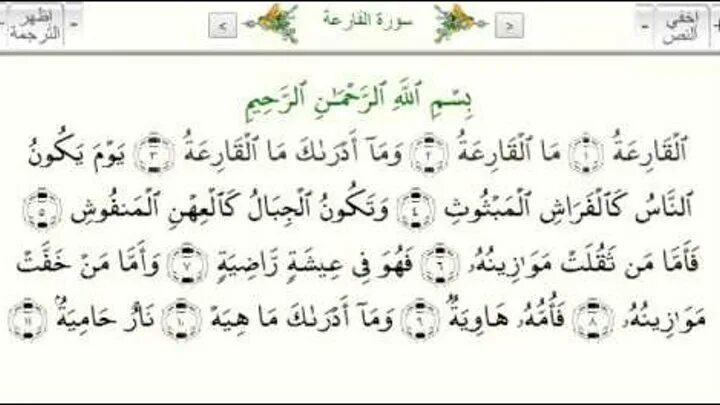 إظهر الترجمة - > سورة القارعة < - إخفي النص +
بِسْمِ ٱللَّهِ ٱلرَّحْمَٰنِ ٱلرَّحِيمِ
ٱلْقَارِعَةُ ١ مَا ٱلْقَارِعَةُ ٢ وَمَآ أَدْرَىٰكَ مَا ٱلْقَارِعَةُ ٣ يَوْمَ يَكُونُ
ٱلنَّاسُ كَٱلْفَرَاشِ ٱلْمَبْثُوثِ ٤ وَتَكُونُ ٱلْجِبَالُ كَٱلْعِهْنِ ٱلْمَنفُوشِ ٥
فَأَمَّا مَن ثَقُلَتْ مَوَٰزِينُهُۥ ٦ فَهُوَ فِى عِيشَةٍ رَّاضِيَةٍ ٧ وَأَمَّا مَنْ خَفَّتْ
مَوَٰزِينُهُۥ ٨ فَأُمُّهُۥ هَاوِيَةٌ ٩ وَمَآ أَدْرَىٰكَ مَا هِيَهْ ١٠ نَارٌ حَامِيَةٌۢ ١١